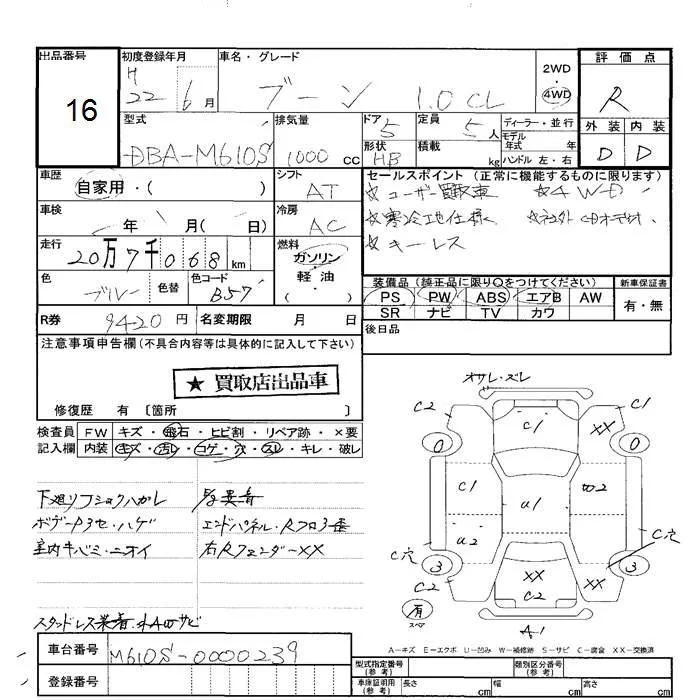 出品番号
16
初度登録年月
H 22年 6月
車名・グレード
ブーン 1.0 CL
2WD
4WD
評価点
R
外装 内装
D D
型式
DBA-M610S
排気量
1000 cc
ドア
5
形状
HB
定員
5人
積載
kg
ディーラー・並行
モデル年式 年
ハンドル 左・右
車歴
自家用・( )
シフト
AT
セールスポイント (正常に機能するものに限ります)
☆ユーザー買取車 ☆4WD
☆寒冷地仕様
☆キーレス
車検
年 月( 日)
冷房
AC
走行
20万7千068km
燃料
ガソリン
軽油
( )
色
ブルー
色替
色コード
B57
装備品 (純正品に限り○をつけてください)
PS PW ABS エアB AW
SR ナビ TV カワ
新車保証書
有・無
R券
9420円
名変期限 月 日
後日品
注意事項申告欄(不具合内容等は具体的に記入して下さい)
★ 買取店出品車
修復歴 有 〔箇所 〕
検査員
記入欄
FW キズ・飛石・ヒビ割・リペア跡・×要
内装 キズ・汚レ・コゲ・穴・スレ・キレ・破レ
下廻リフショクハガレ
ボデー
室内キバミ・ニオイ
エンドパネル・Rフロア歪
右RフェンダーXX
オサレ・ズレ
C2 C1
C1 XX
0 0
C1
U1
U2
C穴 C穴
3 3
XX XX
C2 C2
有
スペア
A1
A-キズ E-エクボ U-凹み W-補修跡 S-サビ C-腐食 XX-交換済
車台番号
M610S-0000239
登録番号
型式指定番号
(参考)
類別区分番号
(参考)
車庫証明用
(参考)
長さ cm 幅 cm 高さ cm